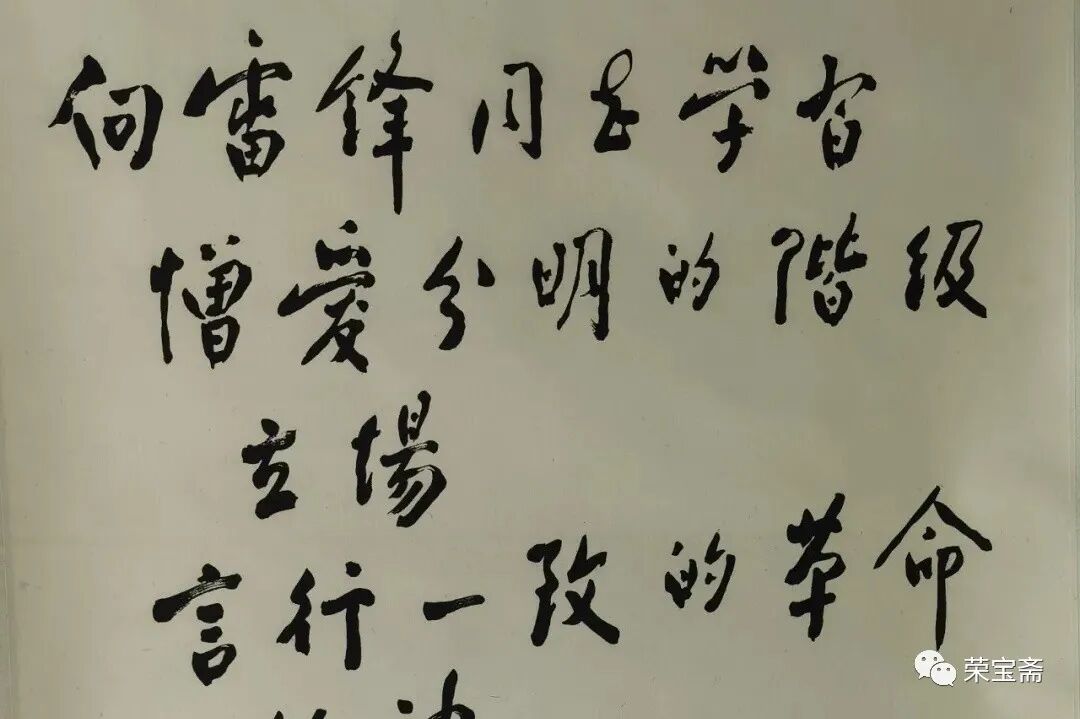 向雷锋同志学習
憎爱分明的階级
立場
言行一致的革命
荣宝斋